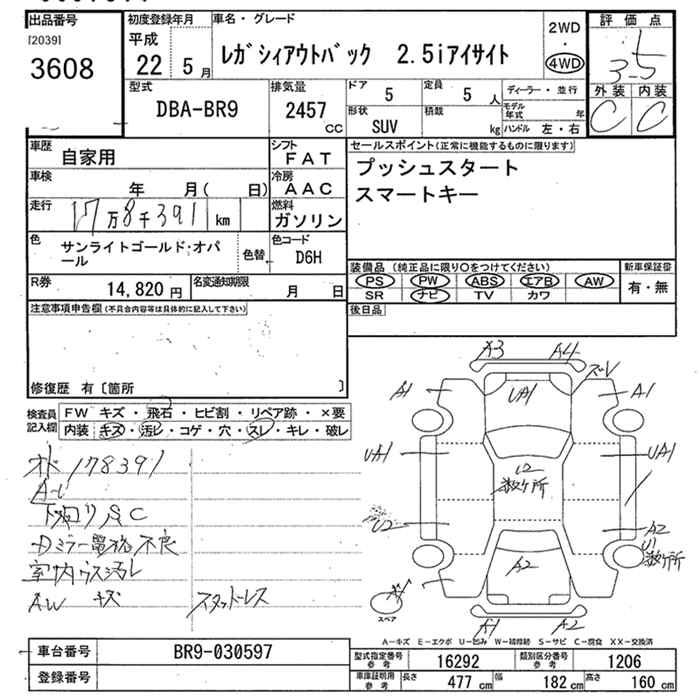 出品番号
[2039]
3608
初度登録年月
平成
22 5 月
車名・グレード
レガシィアウトバック 2.5iアイサイト
2WD
・
4WD
評価点
3.5
外装 内装
C C
型式
DBA-BR9
排気量
2457
CC
ドア
5
定員
5 人
形状
SUV
積載
kg
ディーラー・並行
モデル年式 年
ハンドル 左・右
車歴
自家用
シフト
FAT
車検
年 月( 日)
冷房
AAC
走行
17万8千391 km
燃料
ガソリン
色
サンライトゴールド・オパール
色替
色コード
D6H
R券
14,820 円
名変通知期限
月 日
セールスポイント(正常に機能するものに限ります)
プッシュスタート
スマートキー
装備品(純正品に限り○をつけてください)
PS PW ABS エアB AW
SR ナビ TV カワ
新車保証書
有・無
後日品
注意事項申告欄(不具合内容等は具体的に記入して下さい)
修復歴 有〔箇所 〕
検査員記入欄
FW キズ・飛石・ヒビ割・リペア跡・×要
内装 キズ・汚レ・コゲ・穴・スレ・キレ・破レ
オド 178391
下回りSC
Dミラー電格不良
室内ウス汚レ
AW キズ スタットレス
A3 A4
A1 UA1 A1
UA1 UA1
U2
数ヶ所
U2 A2
U1
数ヶ所
A2
スペア
A1 A2
A-キズ E-エクボ U-凹み W-補修跡 S-サビ C-腐食 XX-交換済
車台番号
BR9-030597
登録番号
型式指定番号 参考
16292
類別区分番号 参考
1206
車庫証明用 参考
長さ 477 cm
幅 182 cm
高さ 160 cm